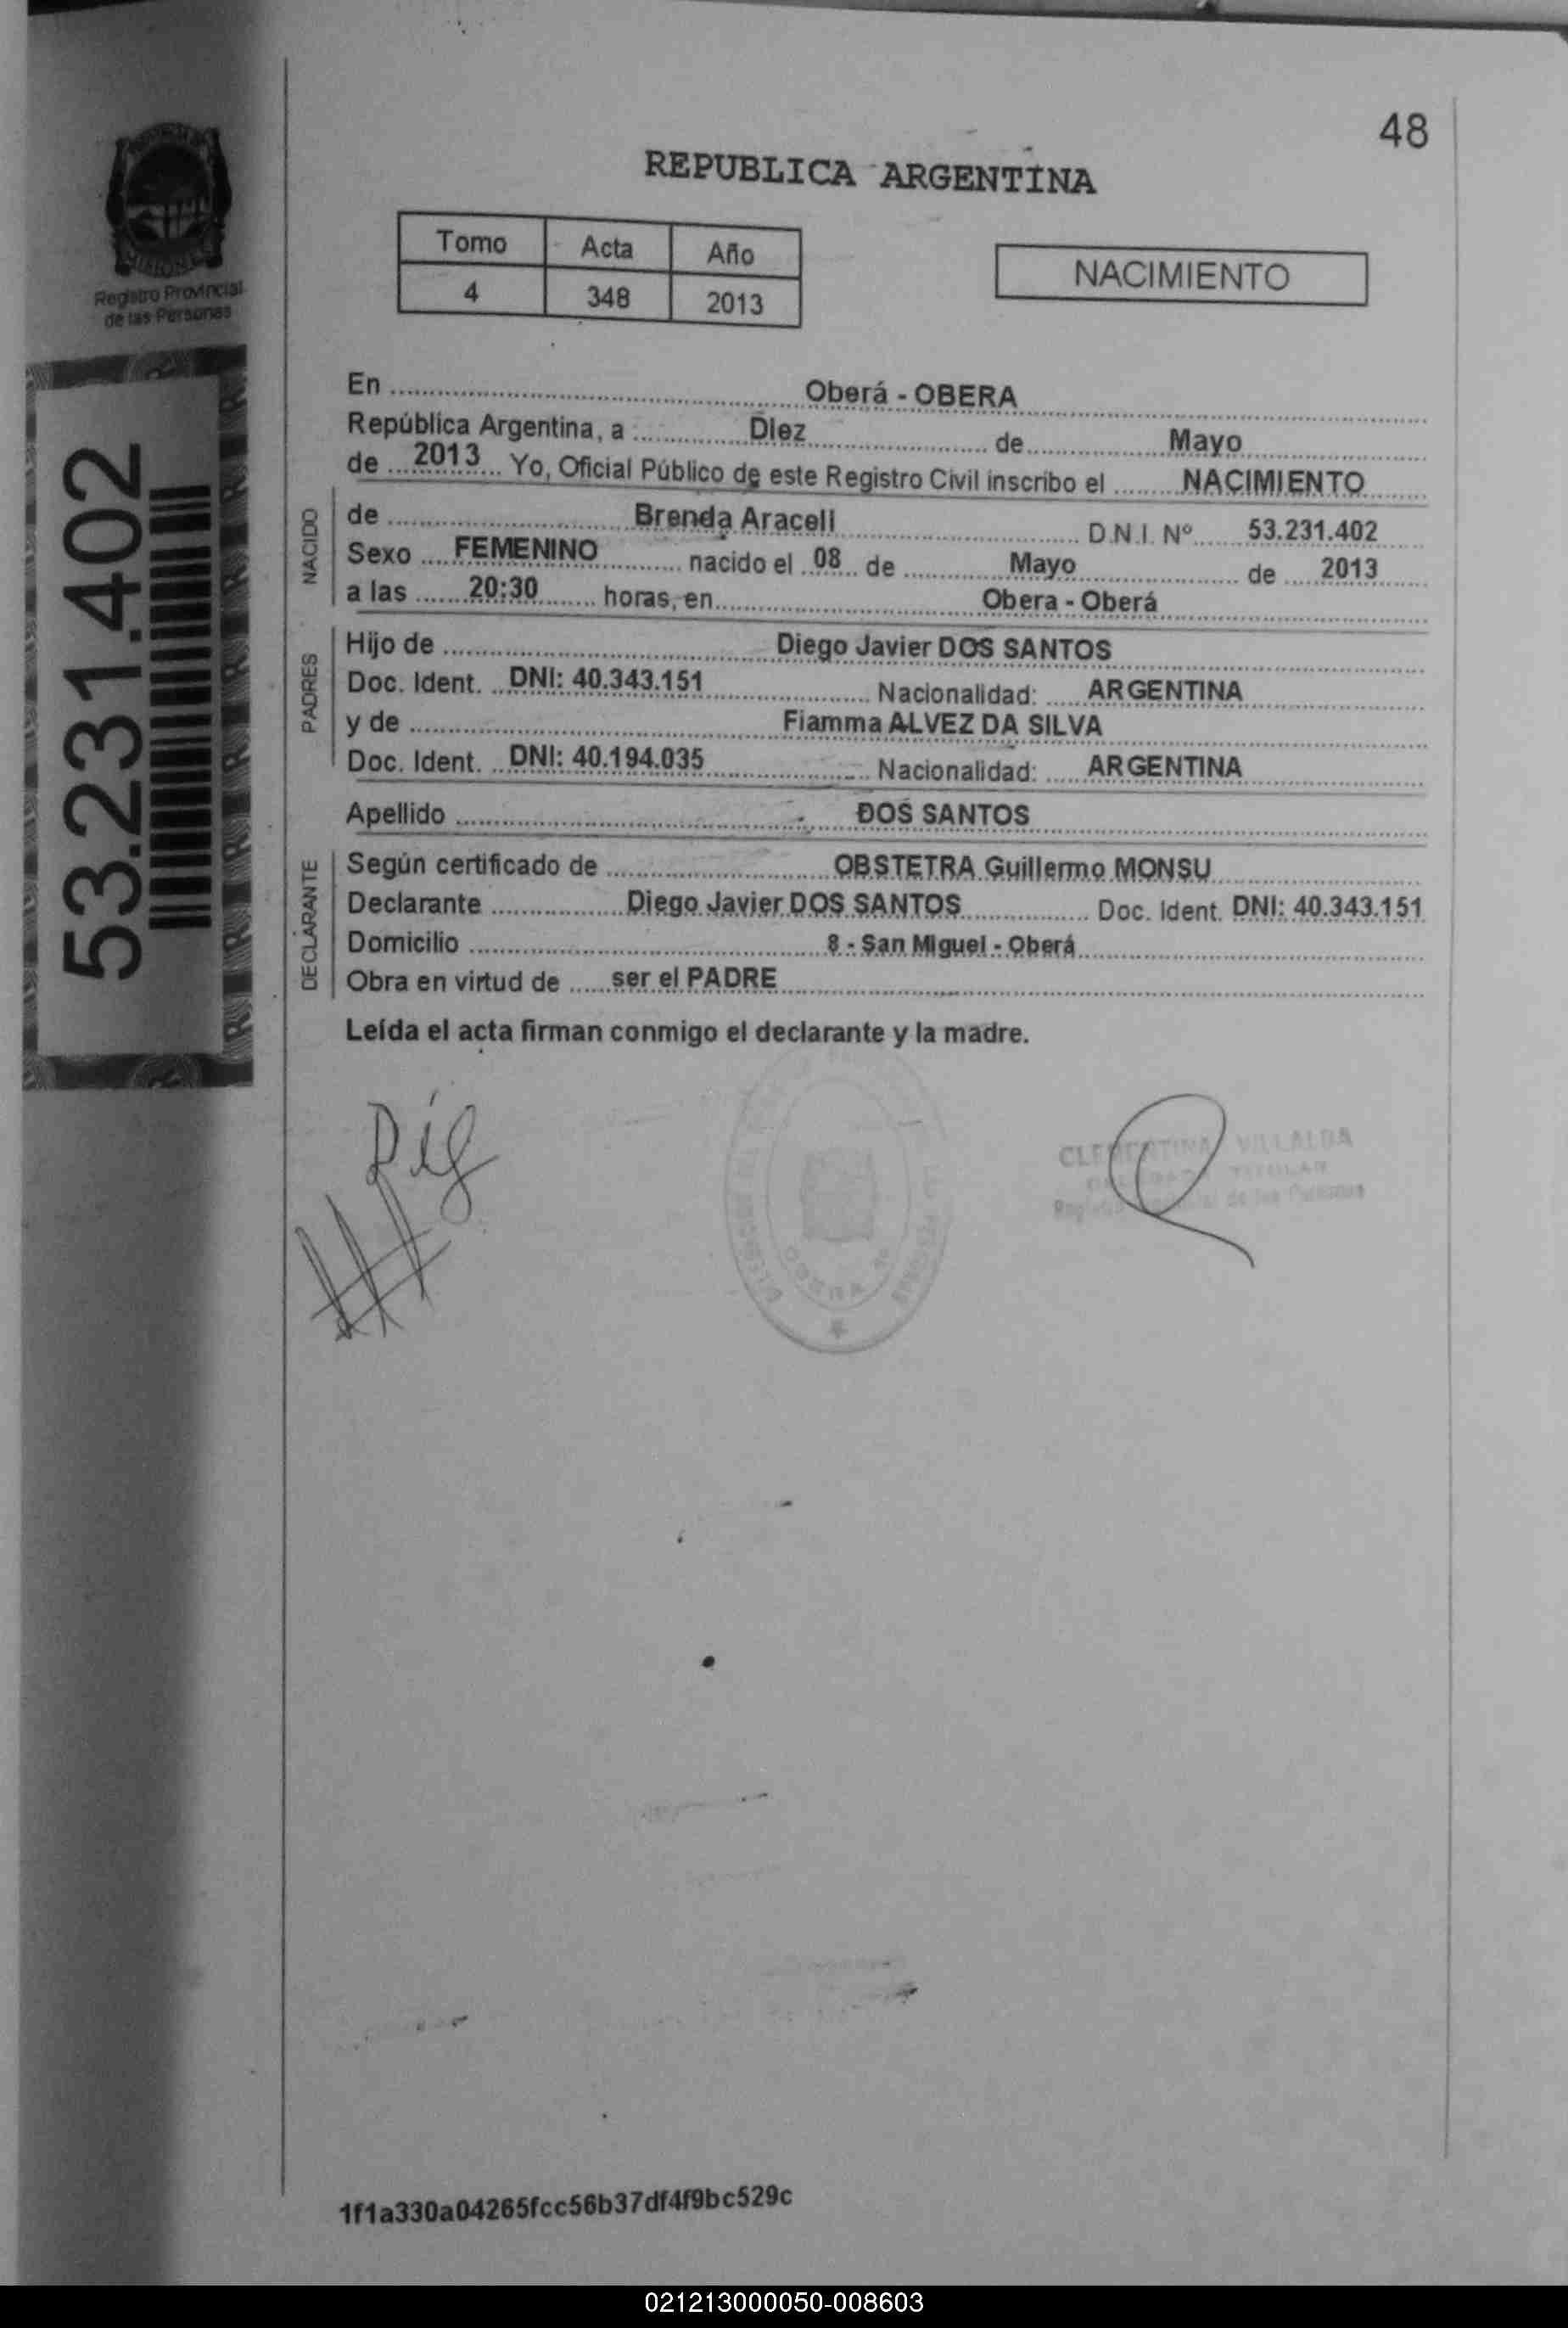 48
REPUBLICA ARGENTINA
Registro Provincial
de las Personas
Tomo Acta Año
4 348 2013
NACIMIENTO
53.231.402
En Oberá - OBERA
República Argentina, a Diez de Mayo
de 2013 Yo, Oficial Público de este Registro Civil inscribo el NACIMIENTO
NACIDO
de Brenda Araceli D.N.I. Nº 53.231.402
Sexo FEMENINO nacido el 08 de Mayo de 2013
a las 20:30 horas, en Obera - Oberá
PADRES
Hijo de Diego Javier DOS SANTOS
Doc. Ident. DNI: 40.343.151 Nacionalidad: ARGENTINA
y de Fiamma ALVEZ DA SILVA
Doc. Ident. DNI: 40.194.035 Nacionalidad: ARGENTINA
Apellido DOS SANTOS
DECLARANTE
Según certificado de OBSTETRA Guillermo MONSU
Declarante Diego Javier DOS SANTOS Doc. Ident. DNI: 40.343.151
Domicilio 8 - San Miguel - Oberá
Obra en virtud de ser el PADRE
Leída el acta firman conmigo el declarante y la madre.
CLEMENTINA VILLALBA
TITULAR
de las Personas
1f1a330a04265fcc56b37df4f9bc529c
021213000050-008603